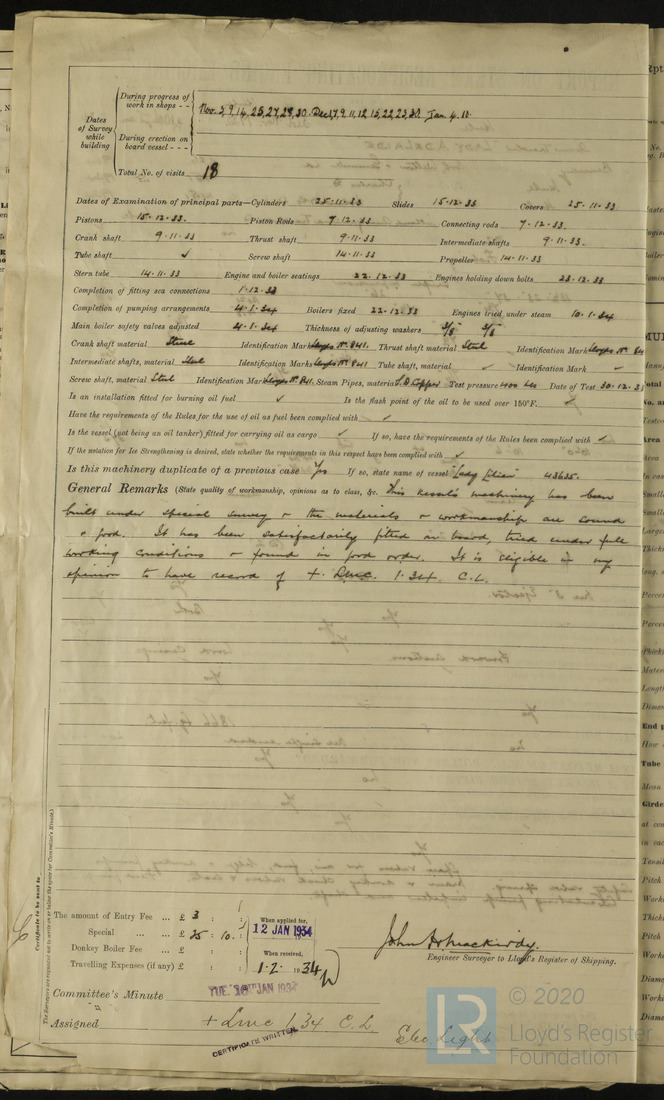 Dates of Survey while building
During progress of work in shops - - Nov. 3, 9, 14, 25, 27, 28, 30. Dec 1, 7, 9, 11, 12, 15, 22, 23, 30. Jan. 4. 10.
During erection on board vessel - - -
Total No. of visits 18
Dates of Examination of principal parts—Cylinders 25.11.33 Slides 15.12.33 Covers 25.11.33
Pistons 15.12.33. Piston Rods 7.12.33. Connecting rods 7.12.33.
Crank shaft 9.11.33 Thrust shaft 9.11.33 Intermediate shafts 9.11.33.
Tube shaft ✓ Screw shaft 14.11.33 Propeller 14.11.33
Stern tube 14.11.33 Engine and boiler seatings 22.12.33 Engines holding down bolts 23.12.33
Completion of fitting sea connections 1.12.33
Completion of pumping arrangements 4.1.34 Boilers fixed 22.12.33 Engines tried under steam 10.1.34
Main boiler safety valves adjusted 4.1.34 Thickness of adjusting washers 3/8 3/8
Crank shaft material Steel Identification Mark Lloyds No 841. Thrust shaft material Steel Identification Mark Lloyds No 84
Intermediate shafts, material Steel Identification Marks Lloyds No 841 Tube shaft, material ✓ Identification Mark ✓
Screw shaft, material Steel Identification Mark Lloyds No 841. Steam Pipes, material S.D. Copper Test pressure 400 lbs Date of Test 30.12.33
Is an installation fitted for burning oil fuel ✓ Is the flash point of the oil to be used over 150°F. ✓
Have the requirements of the Rules for the use of oil as fuel been complied with ✓
Is the vessel (not being an oil tanker) fitted for carrying oil as cargo ✓ If so, have the requirements of the Rules been complied with ✓
If the notation for Ice Strengthening is desired, state whether the requirements in this respect have been complied with ✓
Is this machinery duplicate of a previous case Yes If so, state name of vessel "Lady Lilian" 43635.
General Remarks (State quality of workmanship, opinions as to class, &c. This vessel's machinery has been
built under special survey & the materials & workmanship are sound
& good. It has been satisfactorily fitted on board, tried under full
working conditions & found in good order. It is eligible in my
opinion to have record of + LMC. 1.34. C.L.
Certificate to be sent to
The Surveyors are requested not to write on or below the space for Committee's Minute.
The amount of Entry Fee ... £ 3 : :
Special ... £ 25 : 10. :
Donkey Boiler Fee ... £ : :
Travelling Expenses (if any) £ : :
When applied for,
12 JAN 1934
When received,
1.2. 1934
Engineer Surveyor to Lloyd's Register of Shipping.
Committee's Minute TUE. 16 JAN 1934
Assigned + LMC 1.34 C.L.
Elec. Light
CERTIFICATE WRITTEN
LR
© 2020
Lloyd's Register
Foundation